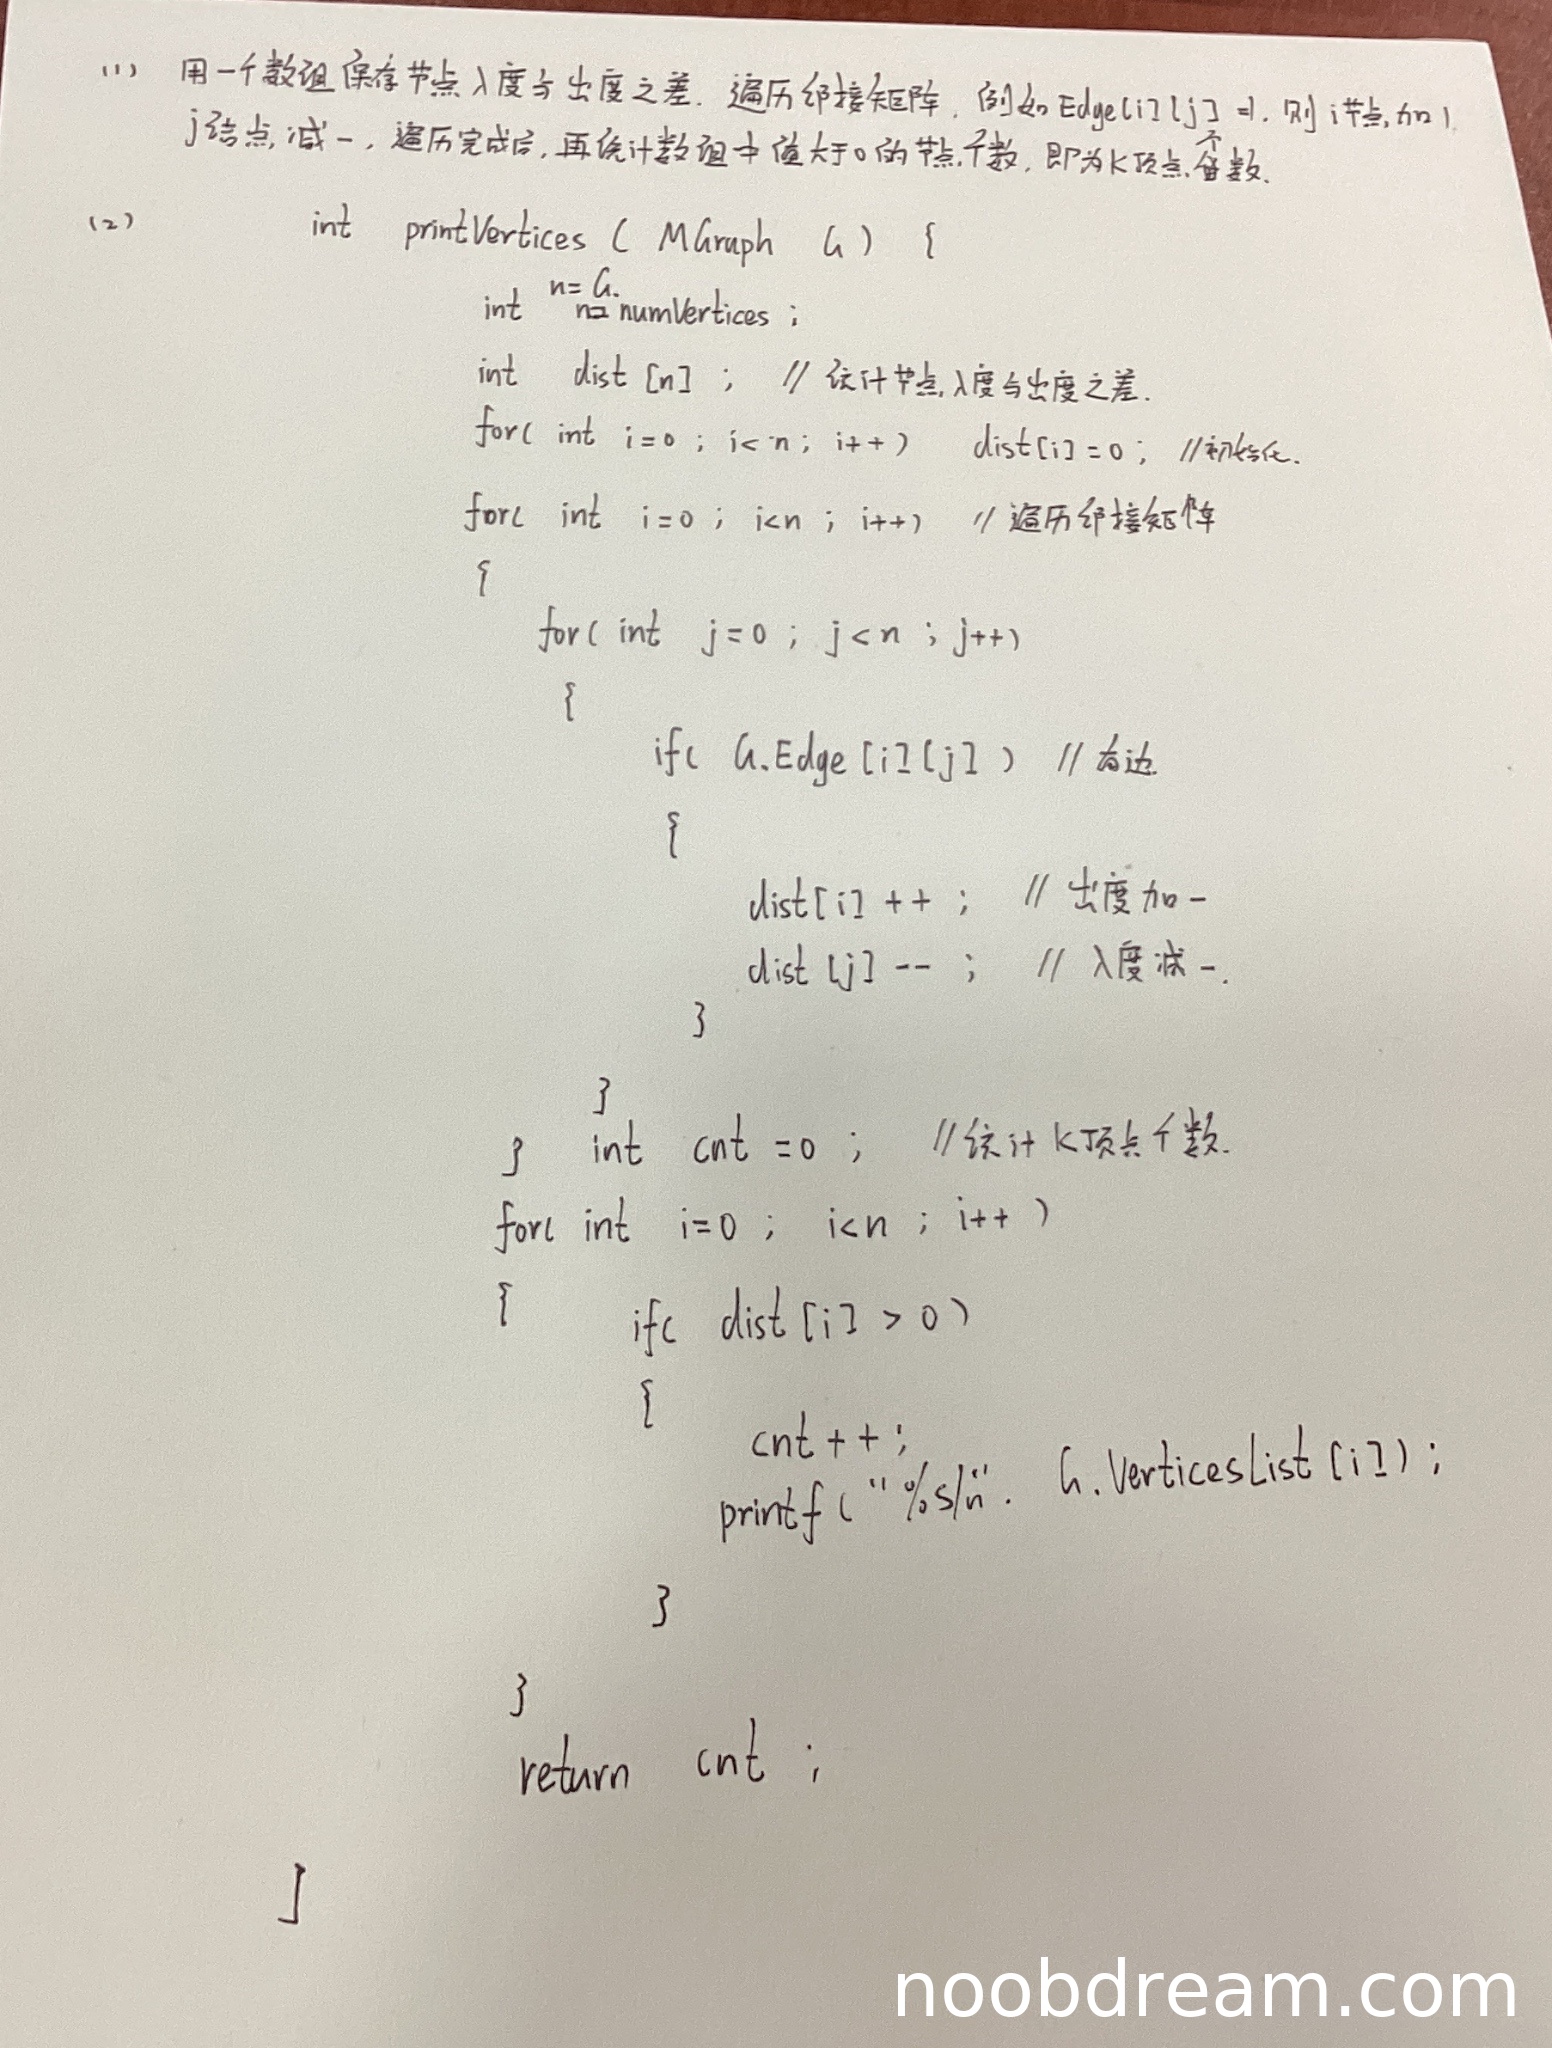 (1) 用一个数组保存节点入度与出度之差. 遍历邻接矩阵. 例如Edge[i][j]=1. 则i节点加1
j结点减一, 遍历完成后, 再统计数组中值大于0的节点个数. 即为K顶点个数.
(2) int printVertices ( MGraph G) {
int n= G.numVertices ;
int dist [n] ; // 统计节点入度与出度之差.
for( int i=0 ; i<n ; i++) dist[i]=0 ; //初始化.
for( int i=0 ; i<n ; i++) // 遍历邻接矩阵
{
for( int j=0 ; j<n ; j++)
{
if( G.Edge[i][j] ) // 有边
{
dist[i] ++ ; // 出度加一
dist [j] -- ; // 入度减一.
}
}
} int cnt =0 ; //统计K顶点个数.
for( int i=0 ; i<n ; i++ )
{ if( dist[i] > 0)
{
cnt++ ;
printf ("%s/n". G.VerticesList[i]) ;
}
}
return cnt ;
}
noobdream.com